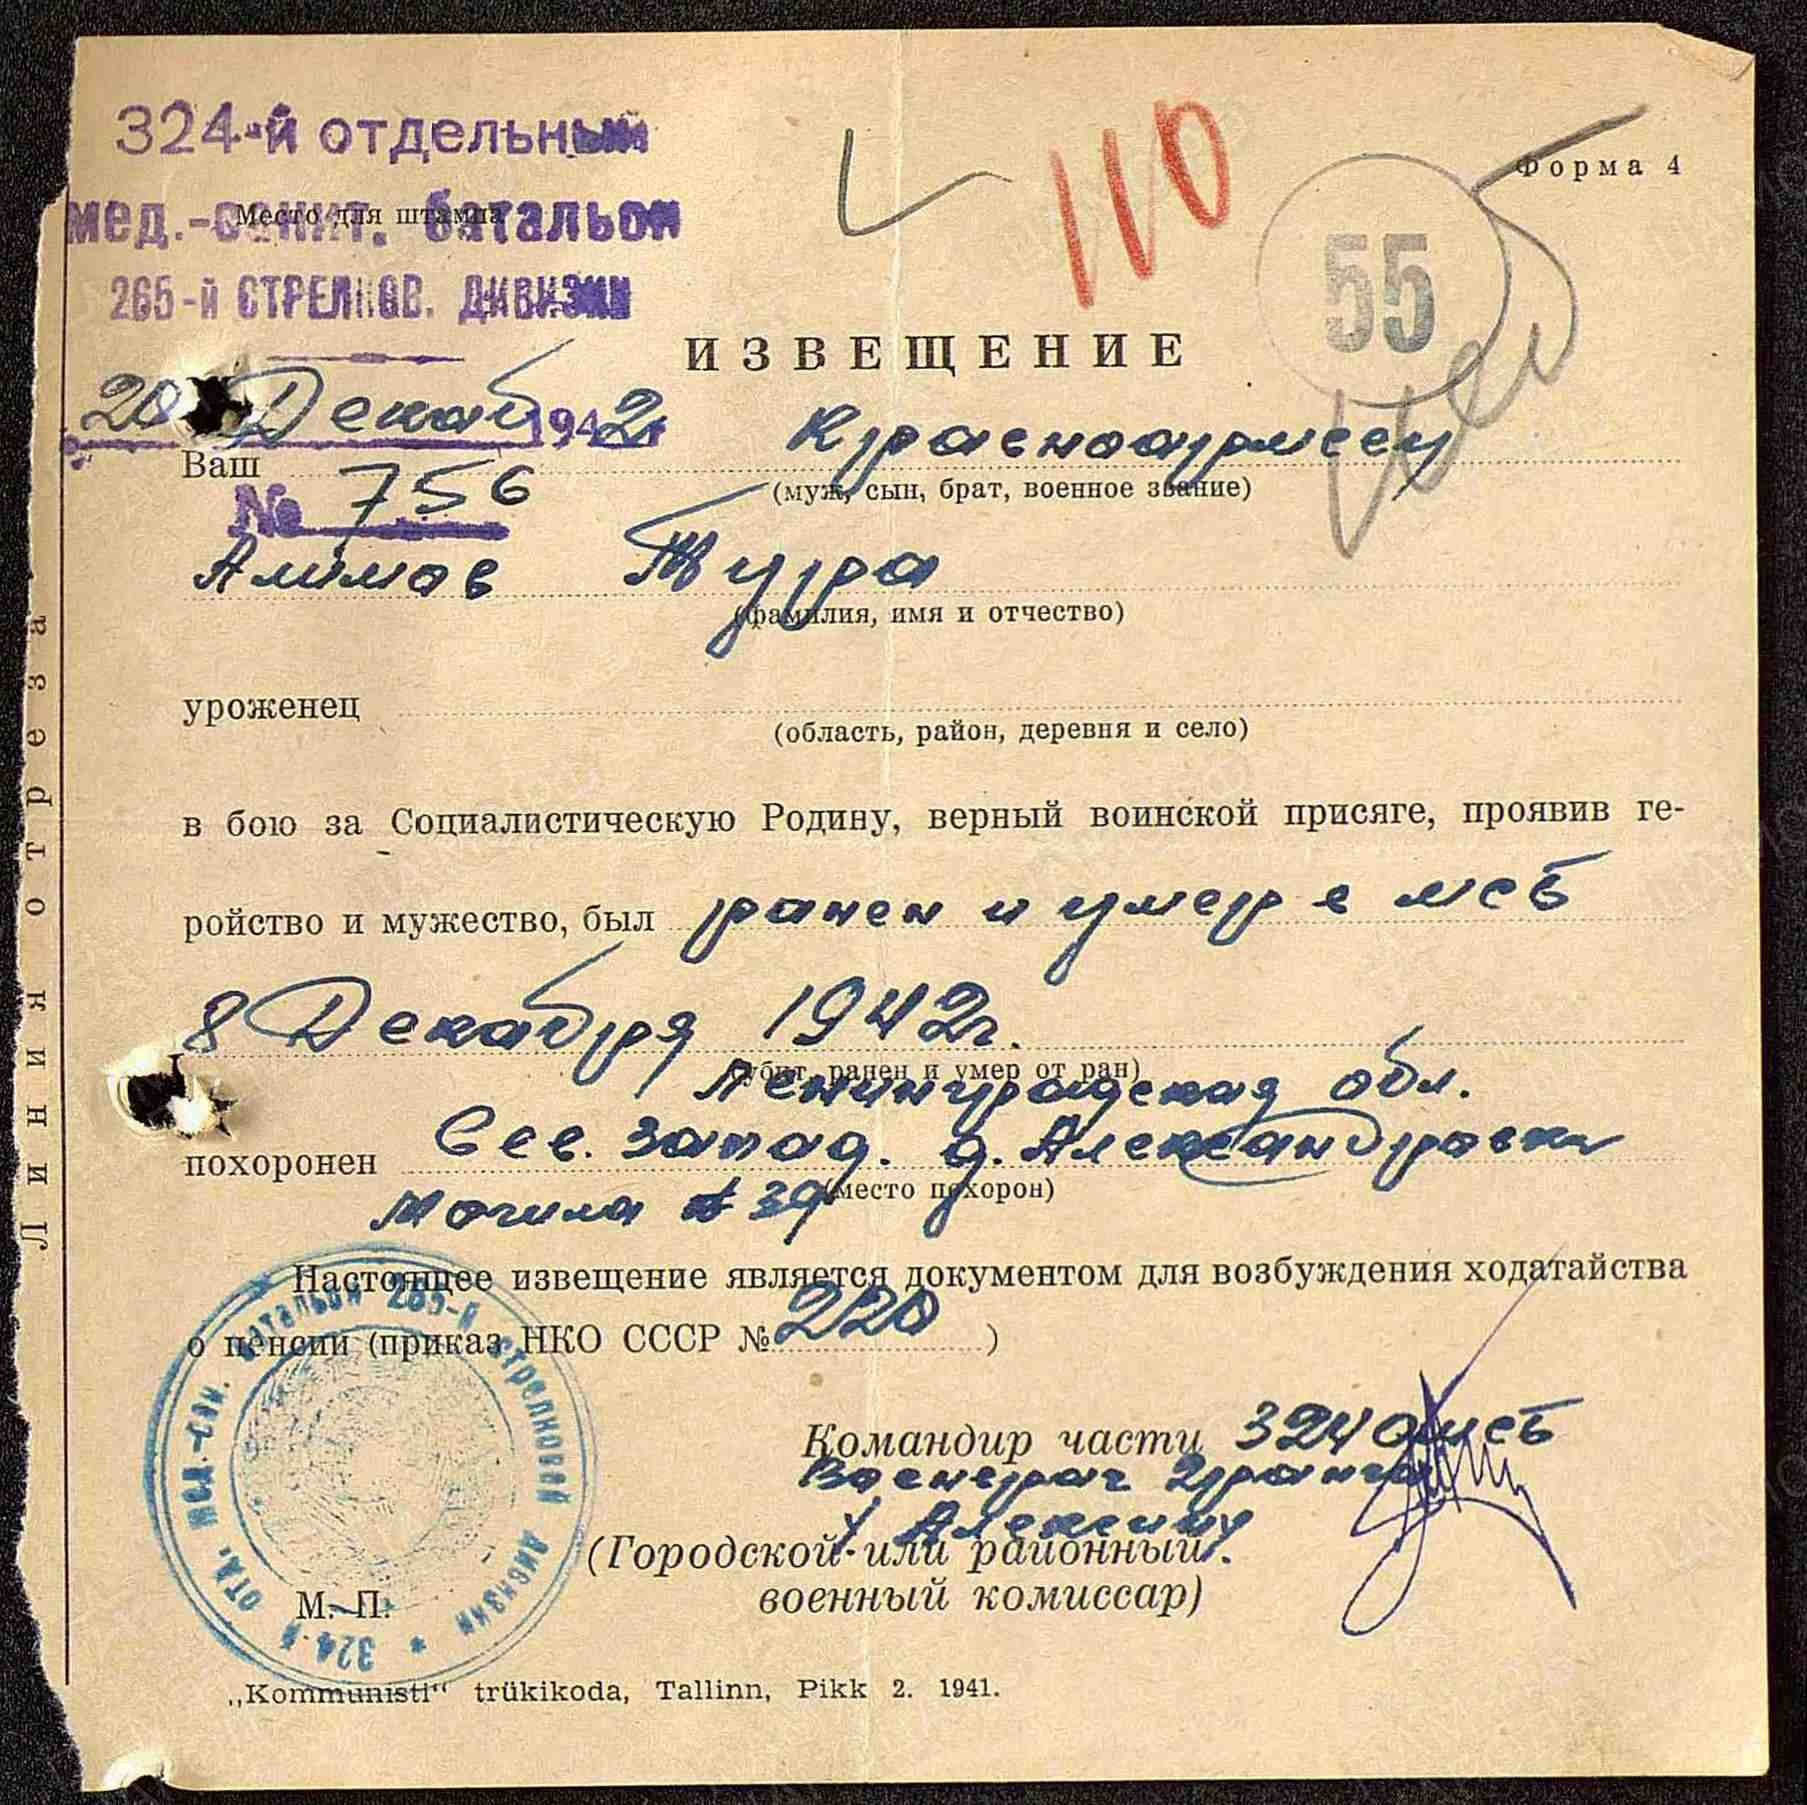 324-й отдельный
мед.-санит. батальон
265-й СТРЕЛКОВ. ДИВИЗИИ
Место для штампа
110
Форма 4
55
ИЗВЕЩЕНИЕ
20 Декаб 1942 г
Ваш Красноармеец
(муж, сын, брат, военное звание)
№ 756
Алимов Тура
(фамилия, имя и отчество)
уроженец
(область, район, деревня и село)
в бою за Социалистическую Родину, верный воинской присяге, проявив ге-
ройство и мужество, был ранен и умер в мсб
8 Декабря 1942г.
(убит, ранен и умер от ран)
Ленинградская обл.
похоронен Сев. запад. д. Александровки
(место похорон)
Могила № 39
Настоящее извещение является документом для возбуждения ходатайства
о пенсии (приказ НКО СССР № 220)
Командир части 324 омсб
Военврач 2 ранга
(Городской или районный
военный комиссар)
М. П.
324-й отд. мед-сан. батальон 265-й стрелковой дивизии
„Kommunisti“ trükikoda, Tallinn, Pikk 2. 1941.
Линия отреза